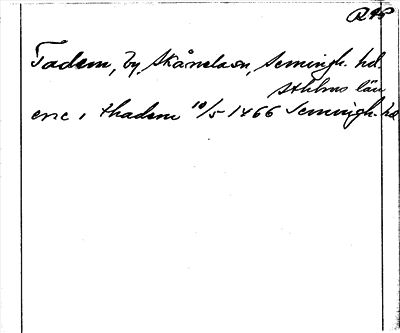 R 45
Tadem, by, Skånela sn, Semingh. hd.
Sthlms län
eric i thadem 10/5 1466 Semingh. hd